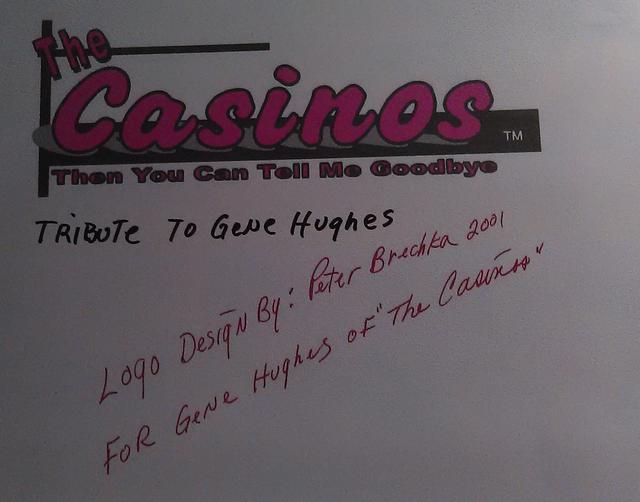 The
Casinos
TM
Then You Can Tell Me Goodbye
TRiBUTe TO GeNe Hughes
LOgO DesigN By: PeTer Brechka 2001
FOR GeNe Hughes OF "The Casinos"